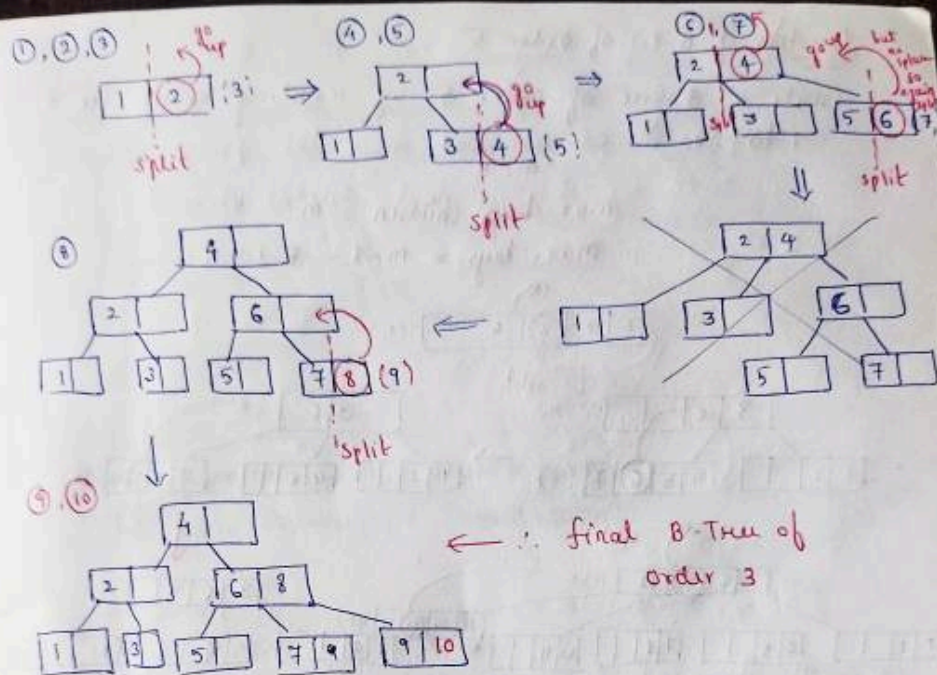 ①, ②, ③
go up
1 2 (3)
split
④, ⑤
2
go up
1 3 4 (5)
split
⑥, ⑦
go up
but no space so again split
2 4
1 split 3 5 6 (7)
split
2 4
1 3 6
5 7
⑧
4
2 6
1 3 5 7 8 (9)
split
⑨, ⑩
4
2 6 8
1 3 5 7 9 9 10
∴ final B-Tree of
order 3